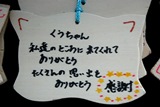 くうちゃん
私達のところにきてくれて
ありがとう
たくさんの思い出を
ありがとう
感謝